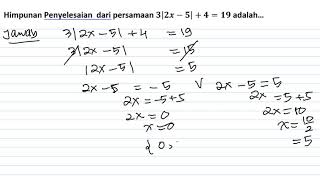 Himpunan Penyelesaian dari persamaan 3|2x − 5| + 4 = 19 adalah...
Jawab 3|2x − 5| + 4 = 19
3|2x − 5| = 15
|2x − 5| = 5
2x − 5 = −5 V 2x − 5 = 5
2x = −5+5 2x = 5+5
2x = 0 2x = 10
x = 0 x = 10/2
= 5
{ 0,